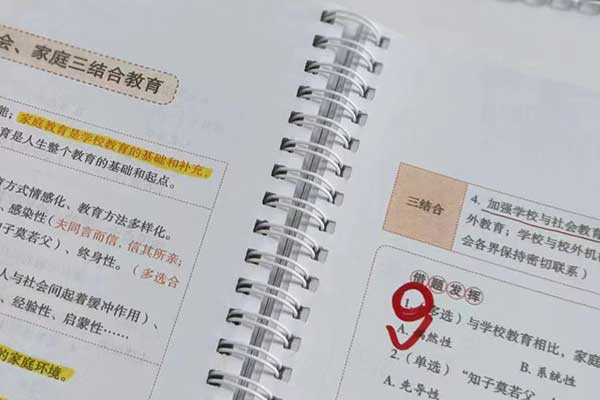 会、家庭三结合教育
能；家庭教育是学校教育的基础和补充，
育是人生整个教育的基础和起点。
育方式情感化、教育方法多样化。
、感染性（夫同言而信，信其所亲；
知子莫若父）、终身性。（多选合
人与社会间起着缓冲作用）、
、经验性、启蒙性……
的家庭环境。
三结合
4. 加强学校与社会教育
外教育；学校与校外机
会各界保持密切联系）
借题发挥
1.（多选）与学校教育相比，家庭
A. 偶然性
B. 系统性
2.（单选）“知子莫若父，
A. 先导性
9